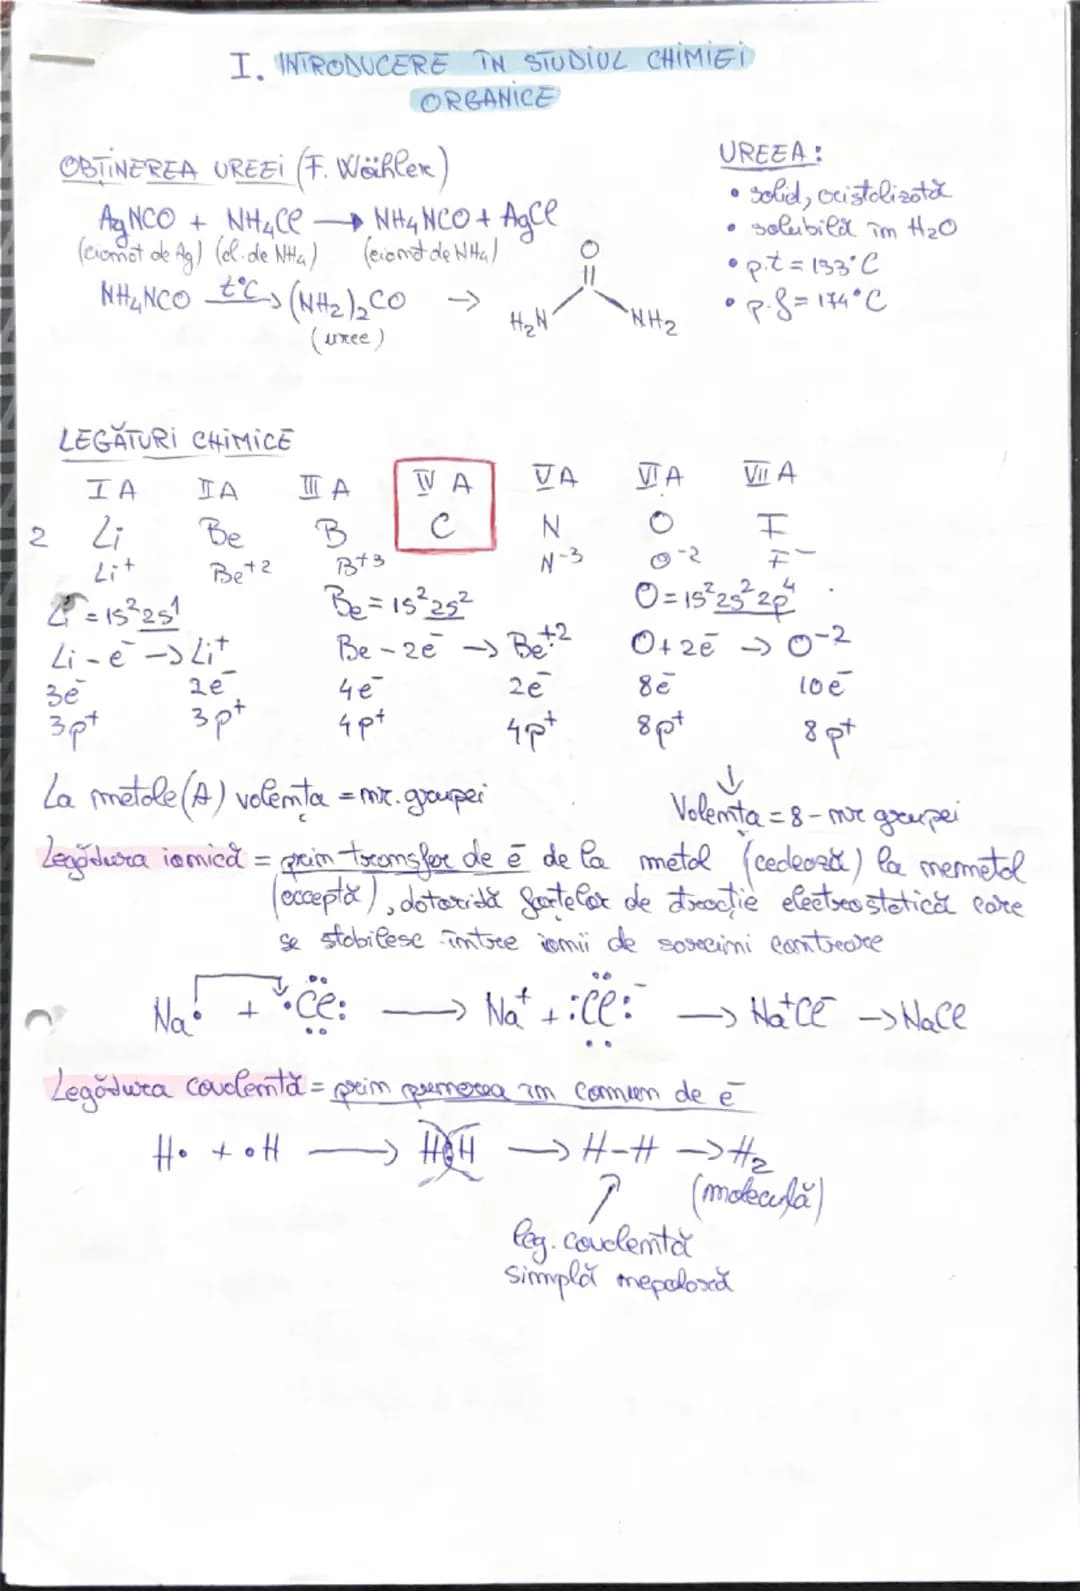 I. INTRODUCERE ÎN STUDIUL CHIMIEI
ORGANICE
OBȚINEREA UREEI (F. Wöhler)
AgNCO + NH₄Cl → NH₄NCO + AgCl
(cianat de Ag) (cl. de NH₄) (cianat de NH₄)
NH₄NCO t°C → (NH₂)₂CO →
(uree)
O
H₂N NH₂
UREEA:
• solid, cristalizată
• solubilă în H₂O
• p.t = 133°C
• p.f = 174°C
LEGĂTURI CHIMICE
I A II A III A IV A V A VI A VII A
2 Li Be B C N O F
Li⁺ Be⁺² B⁺³ N⁻³ O⁻² F⁻
Li = 1s²2s¹ Be = 1s²2s² O = 1s²2s²2p⁴
Li - e⁻ → Li⁺ Be - 2e⁻ → Be⁺² O + 2e⁻ → O⁻²
3e⁻ 2e⁻ 4e⁻ 2e⁻ 8e⁻ 10e⁻
3p⁺ 3p⁺ 4p⁺ 4p⁺ 8p⁺ 8p⁺
La metale (A) valența = nr. grupei
↓
Valența = 8 - nr grupei
Legătura ionică = prin transfer de e⁻ de la metal (cedează) la nemetal
(acceptă), datorită forțelor de atracție electrostatică care
se stabilesc între ionii de sarcini contrare
Na· + ·Cl: → Na⁺ + :Cl:⁻ → Na⁺Cl⁻ → NaCl
Legătura covalentă = prin punerea în comun de e⁻
H· + ·H → H:H → H-H → H₂
(moleculă)
leg. covalentă
simplă nepolară